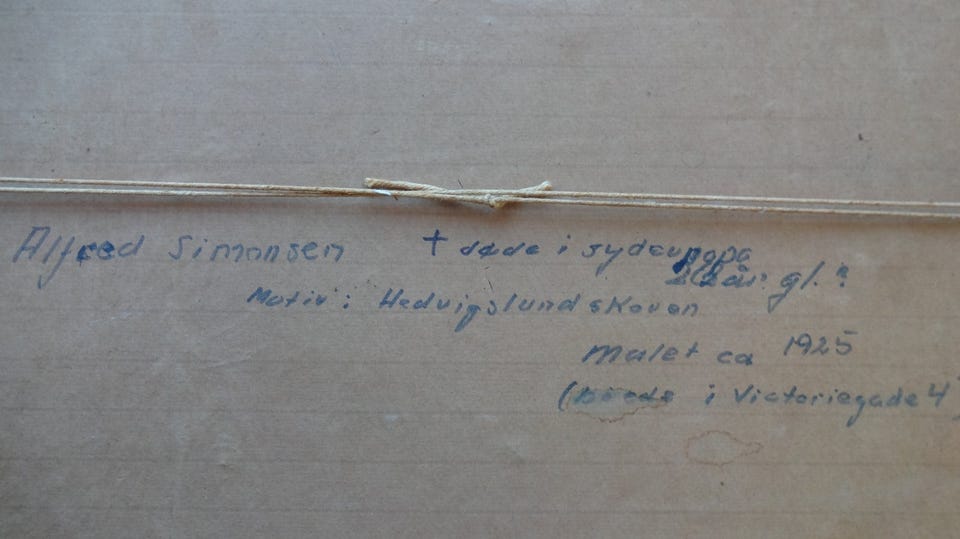 Alfred Simonsen † døde i sydeuropa
år gl.?
Motiv: Hedvigslundskoven
Malet ca 1925
(boede i Victoriegade 4)